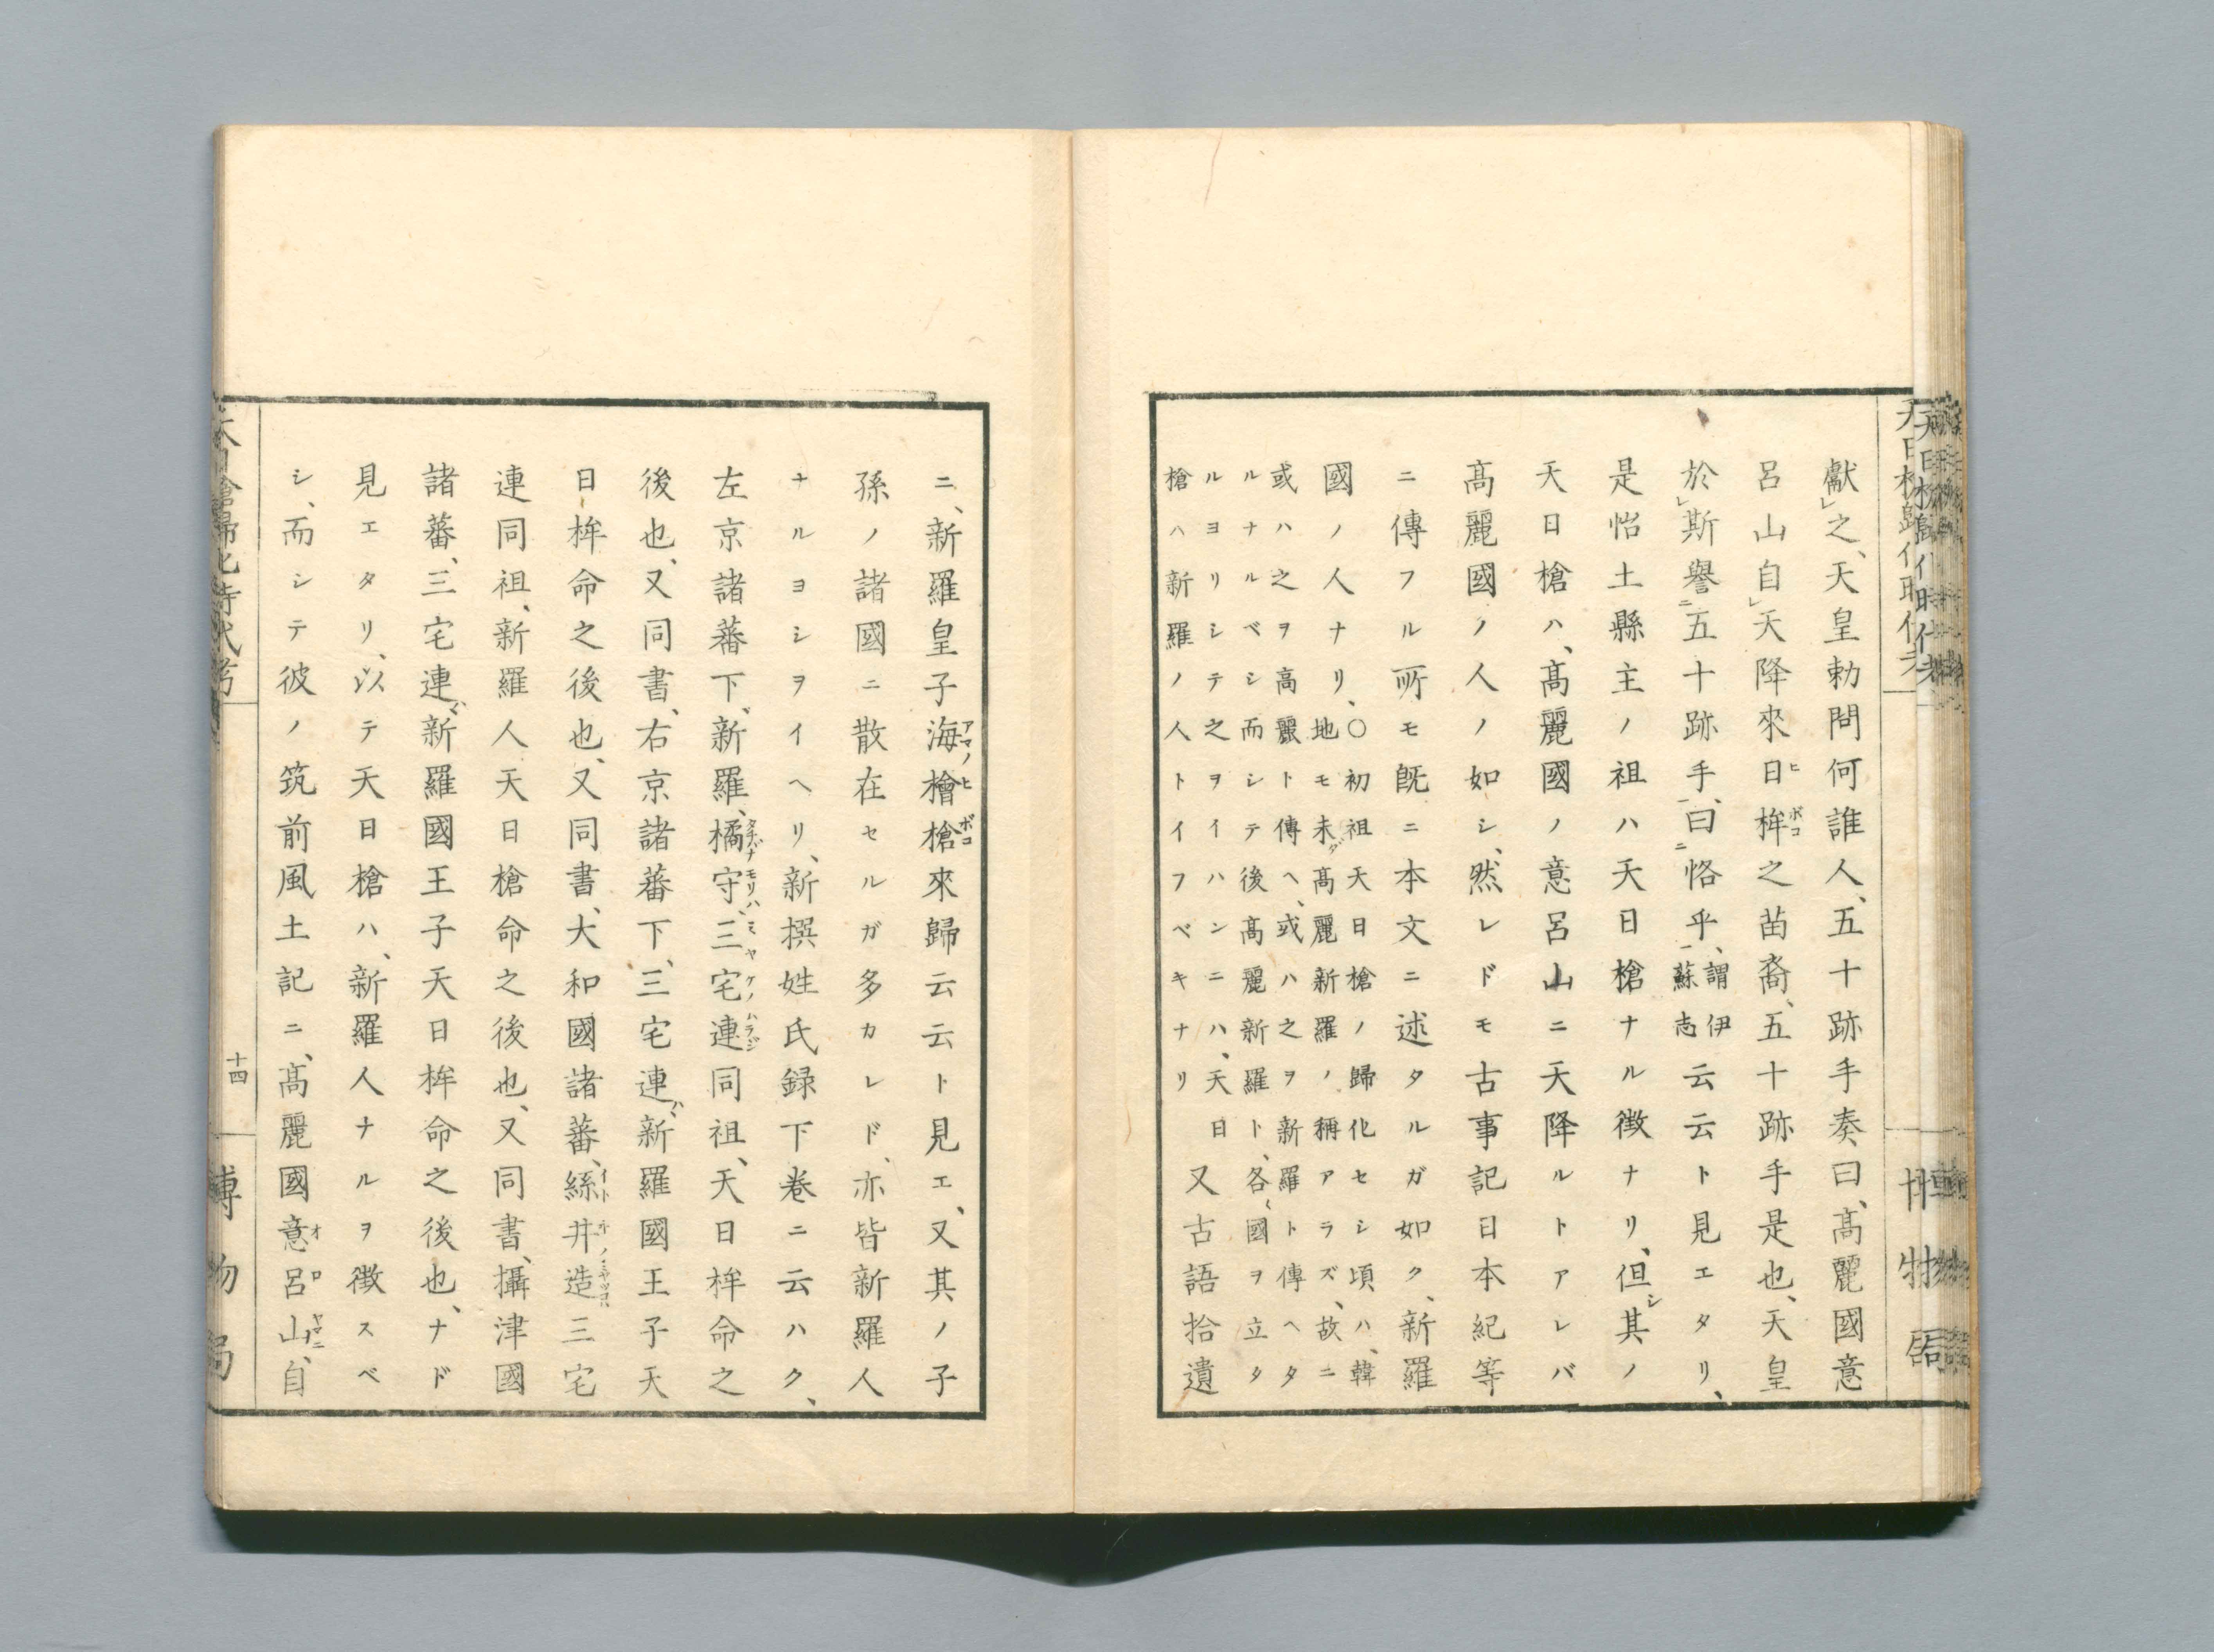 獻之、天皇勅問何誰人、五十跡手奏曰、髙麗國意
呂山自天降來日桙之苗裔、五十跡手是也、天皇
於斯譽五十跡手曰恪乎、謂伊蘇志云云ト見エタリ、
是怡土縣主ノ祖ハ天日槍ナル徴ナリ、但シ其ノ
天日槍ハ、髙麗國ノ意呂山ニ天降ルトアレバ
髙麗國ノ人ノ如シ、然レドモ古事記日本紀等
ニ傳フル所モ既ニ本文ニ述タルガ如ク、新羅
國ノ人ナリ、〇初祖天日槍ノ歸化セシ頃ハ、韓
地モ未ダ髙麗新羅ノ稱アラズ、故ニ
或ハ之ヲ高麗ト傳ヘ、或ハ之ヲ新羅ト傳ヘタ
ルナルベシ而シテ後髙麗新羅ト、各〻國ヲ立タ
ルヨリシテ之ヲイハンニハ、天日
槍ハ新羅ノ人トイフベキナリ
又古語拾遺
ニ、新羅皇子海檜槍來歸云云ト見エ、又其ノ子
孫ノ諸國ニ散在セルガ多カレド、亦皆新羅人
ナルヨシヲイヘリ、新撰姓氏録下卷ニ云ハク、
左京諸蕃下、新羅、橘守、三宅連同祖、天日桙命之
後也、又同書、右京諸蕃下、三宅連ハ、新羅國王子天
日桙命之後也、又同書、大和國諸蕃、絲井造三宅
連同祖、新羅人天日槍命之後也、又同書、攝津國
諸蕃、三宅連ハ、新羅國王子天日桙命之後也、ナド
見エタリ、以テ天日槍ハ、新羅人ナルヲ徴スベ
シ、而シテ彼ノ筑前風土記ニ、髙麗國意呂山、自
十四
博物局